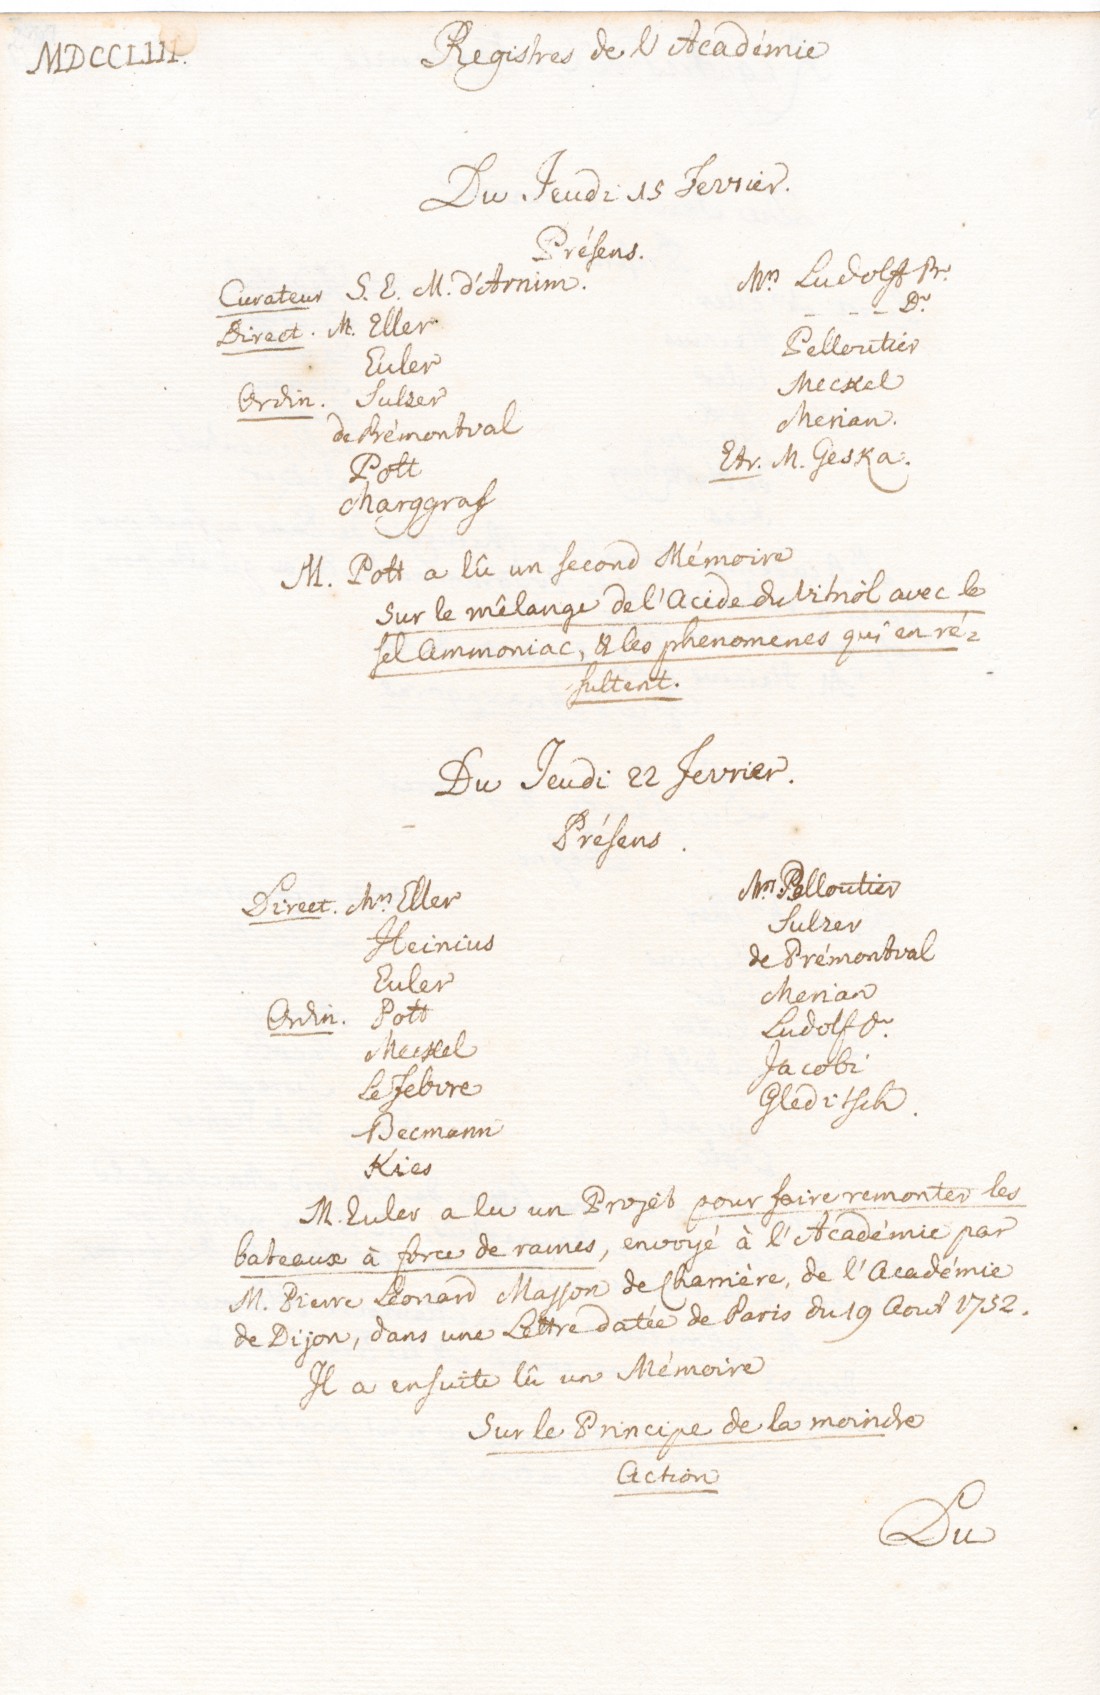 MDCCLIII.
Registres de l'Académie
Du Jeudi 15 Fevrier.
Présens.
Curateur S. E. M. d'Arnim.
Direct. M. Eller
Euler
Ordin. Sulzer
de Prémontval
Pott
Marggraf
Mrs Ludolff Pr.
- - - - Dr.
Pelloutier
Meckel
Merian.
Etr. M. Geska.
M. Pott a lû un second Mémoire
Sur le mêlange de l'Acide du Vitriòl avec le
sel Ammoniac, & les phenomenes qui en ré-
sultent.
Du Jeudi 22 Fevrier.
Présens.
Direct. Mrs Eller
Heinius
Euler
Ordin. Pott
Meckel
Le Febvre
Becmann
Kies
Mrs Pelloutier
Sulzer
de Prémontval
Merian
Ludolf Dr.
Jacobi
Gleditsch.
M. Euler a lu un Projet pour faire remonter les
bateaux à force de rames, envoyé à l'Académie par
M. Pierre Léonard Masson de Charrière, de l'Académie
de Dijon, dans une Lettre datée de Paris du 19 Aout 1752.
Il a ensuite lû un Mémoire
Sur le Principe de la moindre
Action
Du